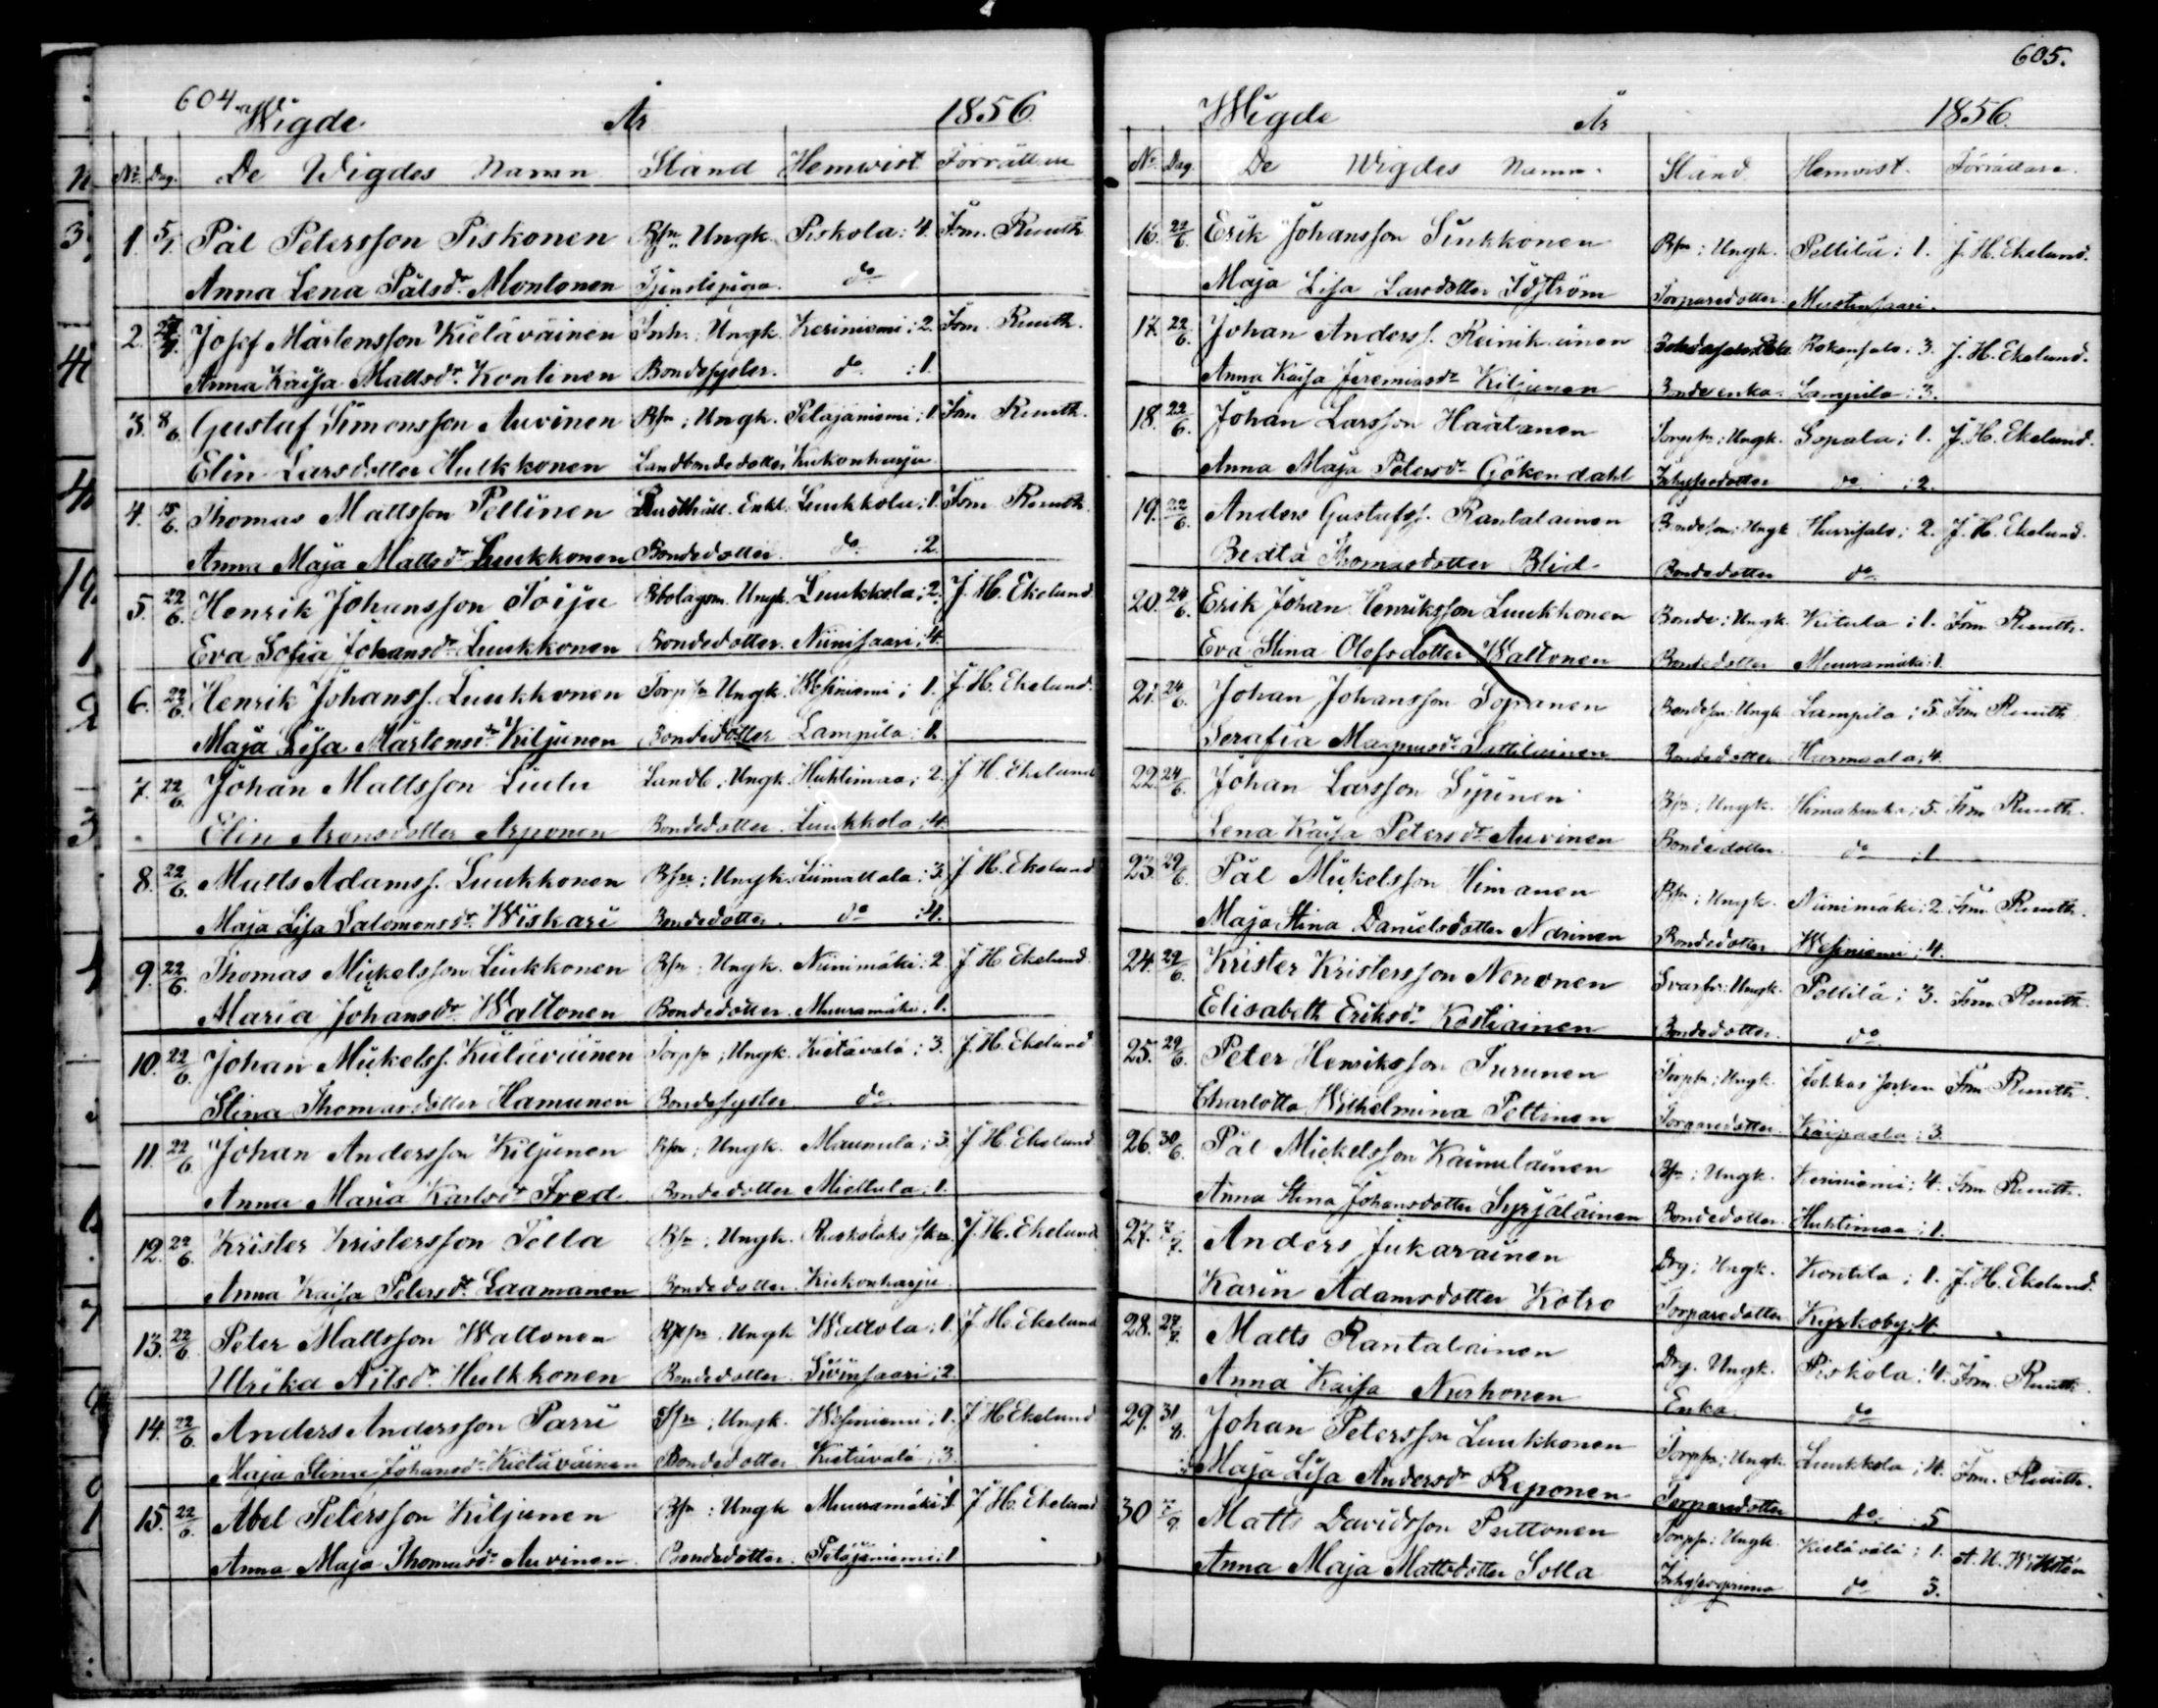 604.
Wigde År 1856
No. Dag. De Wigdes Namn Stånd Hemvist Förrättare
1. 5/1. Pål Petersson Piskonen Bsn. Ungk. Piskola: 4. Fom. Ruuth
Anna Lena Pålsdr. Montonen Tjenstepiga do
2. Josef Mårtensson Kietäväinen Inh. Ungk. Keriniemi: 2. Fom. Ruuth.
Anna Kaisa Mattsdr. Kontinen Bondesyster. do :1.
3. 8/6. Gustaf Simonsson Auvinen Bsn: Ungk. Petäjäniemi: 1. Fom Ruuth.
Elin Larsdotter Hulkkonen Landbondedotter Kukonharju
4. 15/6. Thomas Mattsson Peltinen Rusthåll. Enkl. Luukkola: 1. Fom. Ruuth.
Anna Maja Mattsdr. Luukkonen Bondedotter. do :2.
5. 22/6. Henrik Johansson Toija Bbolagsm. Ungk. Luukkola: 2. J. H. Ekelund.
Eva Sofia Johansdr. Luukkonen Bondedotter. Niinisaari: 4.
6. 22/6. Henrik Johanss. Luukkonen Torpsn Ungk. Wesiniemi: 1. J. H. Ekelund.
Maja Lisa Mårtensdr. Kiljunen Bondedotter Lampila: 1.
7. 22/6. Johan Mattsson Liulu Landb: Ungk. Huhtimaa: 2. J H. Ekelund
Elin Aronsdotter Arponen Bondedotter. Luukkola: 4.
8. 22/6. Matts Adamss. Luukkonen Bsn: Ungk. Liimattala: 3. J H. Ekelund
Maja Lisa Salomonsdr. Wiskari Bondedotter. do :4.
9. 22/6. Thomas Mickelsson Liukkonen Bsn: Ungk. Niinimäki: 2 J H. Ekelund
Maria Johansdr. Waltonen Bondedotter. Muuramäki: 1.
10. 22/6. Johan Mickelss. Kietäväinen Torpsn: Ungk. Kietävälä: 3. J. H. Ekelund
Stina Thomasdotter Hamunen Bondesyster do
11. 22/6. Johan Andersson Kiljunen Bsn: Ungk. Maunula: 3. J H. Ekelund
Anna Maria Karlsdr. Fred. Bondedotter Miettula: 1.
12. 22/6. Krister Kristersson Tella Bsn: Ungk. J. H. Ekelund
Anna Kaisa Petersdr. Laamanen Bondedotter. Kukonharju
13. 22/6. Peter Mattsson Waltonen Ungk Waltola: 1. J. H. Ekelund
Ulrika Nilsdr. Hulkkonen Bondedotter. :2.
14. 22/6. Anders Andersson Parri Ungk. Wesiniemi: 1. J H Ekelund
Maja Stina Johansdr. Kietäväinen Bondedotter Kietävälä: 3.
15. 22/6. Abel Petersson Kiljunen Bsn: Ungk Muuramäki: 1 J H. Ekelund
Anna Maja Thomasdr. Auvinen. Bondedotter. Petäjäniemi: 1
605.
Wigde År 1856.
No. Dag. De Wigdes Namn. Stånd. Hemvist. Förrättare.
16. 22/6. Erik Johansson Sinkkonen Bsn: Ungk. Peltilä: 1. J. H. Ekelund.
Maja Lisa Larsdotter Idström Torparedotter. Mustinsaari.
17. 22/6. Johan Anderss. Reinikainen Rokansalo: 3. J. H. Ekelund.
Anna Kaisa Jeremiasdr Kiljunen Bondeenka. Lampila: 3.
18. 22/6. Johan Larsson Haatanen Torpsn: Ungk. Sopala: 1. J. H. Ekelund.
Anna Maja Petersdr Gökendahl Inhysedotter do :2.
19. 22/6. Anders Gustafss. Rantalainen Bondeson: Ungk Hurrisalo: 2. J. H. Ekelund.
Beata Thomasdotter Blid Bondedotter do
20. 24/6. Erik Johan Henriksson Luukkonen Bonde: Ungk. Kitula: 1. Fom Ruuth.
Eva Stina Olofsdotter Waltonen Bondedotter Muuramäki: 1.
21. 24/6. Johan Johansson Sopanen Bondesn: Ungk Lampila: 5. Fom Ruuth.
Serafia Magnusdr. Suttilainen Bondedotter Harmaala: 4.
22. 24/6. Johan Larsson Sipinen Bsn: Ungk. Himahuuha: 5. Fom Ruuth.
Lena Kaisa Petersdr. Auvinen Bondedotter. do :1
23. 29/6. Pål Mickelsson Himanen Bsn: Ungk. Niinimäki: 2. Fom Ruuth.
Maja Stina Danielsdotter Närinen Bondedotter Wesiniemi: 4.
24. 29/6. Krister Kristersson Neronen Svarfv: Ungk. Peltilä: 3. Fom Ruuth.
Elisabeth Eriksdr. Kostiainen Bondedotter. do.
25. 29/6. Peter Henriksson Turunen Torpsn: Ungk. Fom Ruuth.
Charlotta Wilhelmina Peltinen Torparedotter. Kaipaala: 3.
26. 30/6. Pål Mickelsson Kainulainen Bsn: Ungk. Keriniemi: 4. Fom Ruuth.
Anna Stina Johansdotter Syrjäläinen Bondedotter. Huhtimaa: 1.
27. 7/7. Anders Jukarainen Drg: Ungk. Kontila: 1. J. H. Ekelund.
Karin Adamsdotter Kotro Torparedotter Kyrkoby: 4.
28. 27/7. Matts Rantalainen Drg. Ungk. Piskola: 4. Fom. Ruuth.
Anna Kaisa Nurhonen Enka. do
29. 31/8. Johan Petersson Luukkonen Torpsn: Ungk. Luukkola: 4. Fom. Ruuth.
Maja Lisa Andersdr Reponen Torparedotter do. :5
30 7/9. Matts Davidsson Puttonen Torpsn: Ungk. Kietävälä: 1.
Anna Maja Mattsdotter Solla do 3.